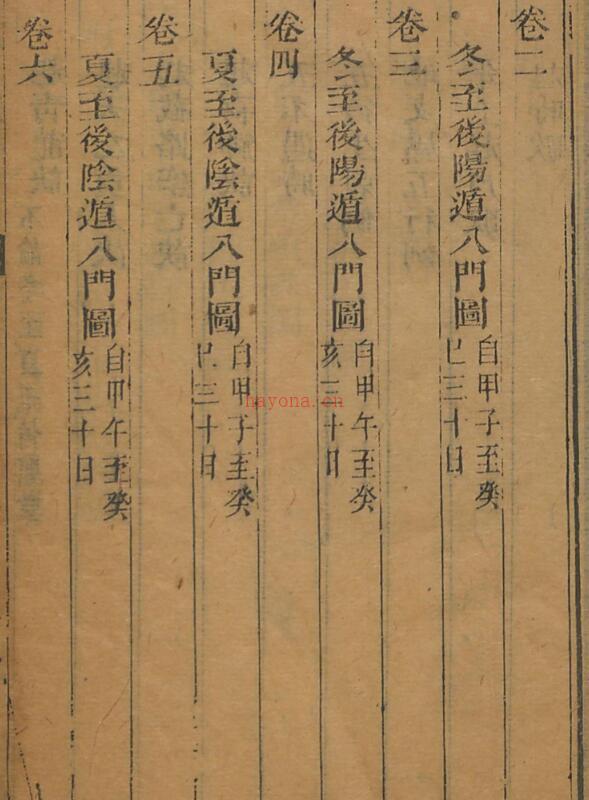 卷二
冬至後陽遁八門圖自甲子至癸巳三十日
卷三
冬至後陽遁八門圖自甲午至癸亥三十日
卷四
夏至後陰遁八門圖自甲子至癸巳三十日
卷五
夏至後陰遁八門圖自甲午至癸亥三十日
卷六
hayona.cn